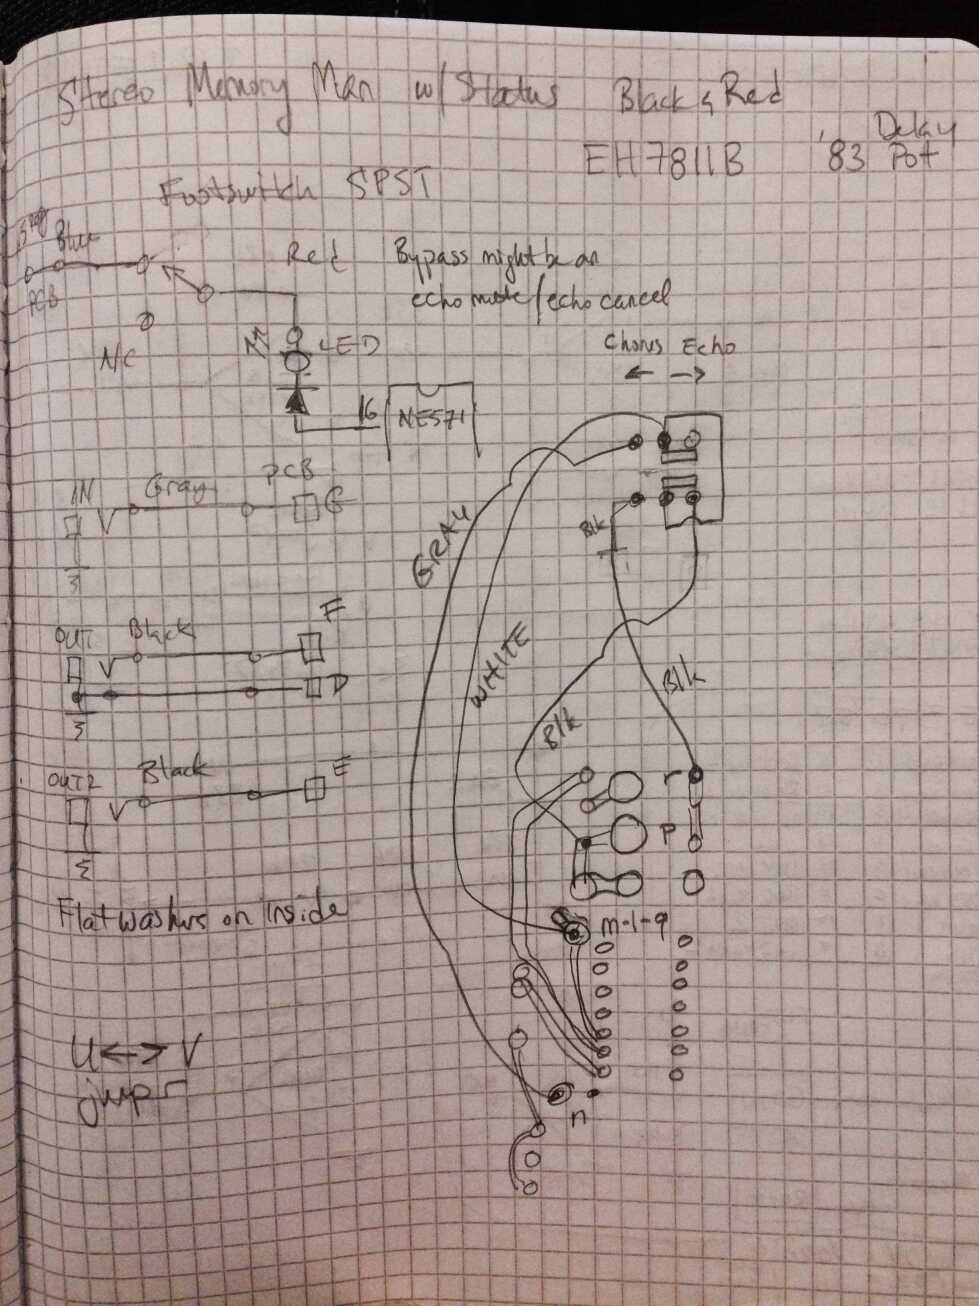 Stereo Memory Man w/ Status Black & Red
EH7811B '83 Delay Pot
Footswitch SPST
Blue
PCB
N/C
Red
LED
16
NE571
Bypass might be an
echo mute/echo cancel
Chorus Echo
← →
IN
Gray
PCB
G
OUT
Black
F
D
OUT2
Black
E
Flat washers on inside
U<->V
jmpr
GRAY
WHITE
Blk
Blk
Blk
r
p
m-1-9
n